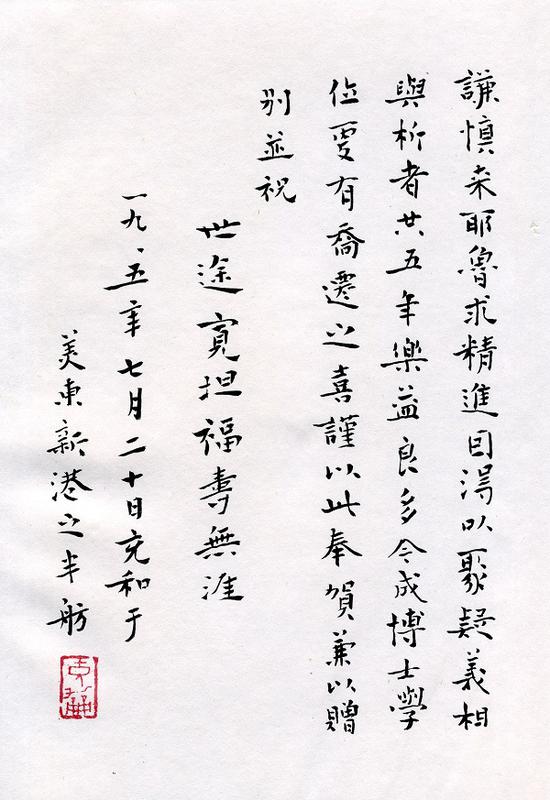 謙慎来耶魯求精進因得以聚疑義相
與析者共五年樂益良多今成博士學
位更有喬遷之喜謹以此奉賀兼以贈
別並祝
世途寬坦福壽無涯
一九八五年七月二十日充和于
美東新港之半舫